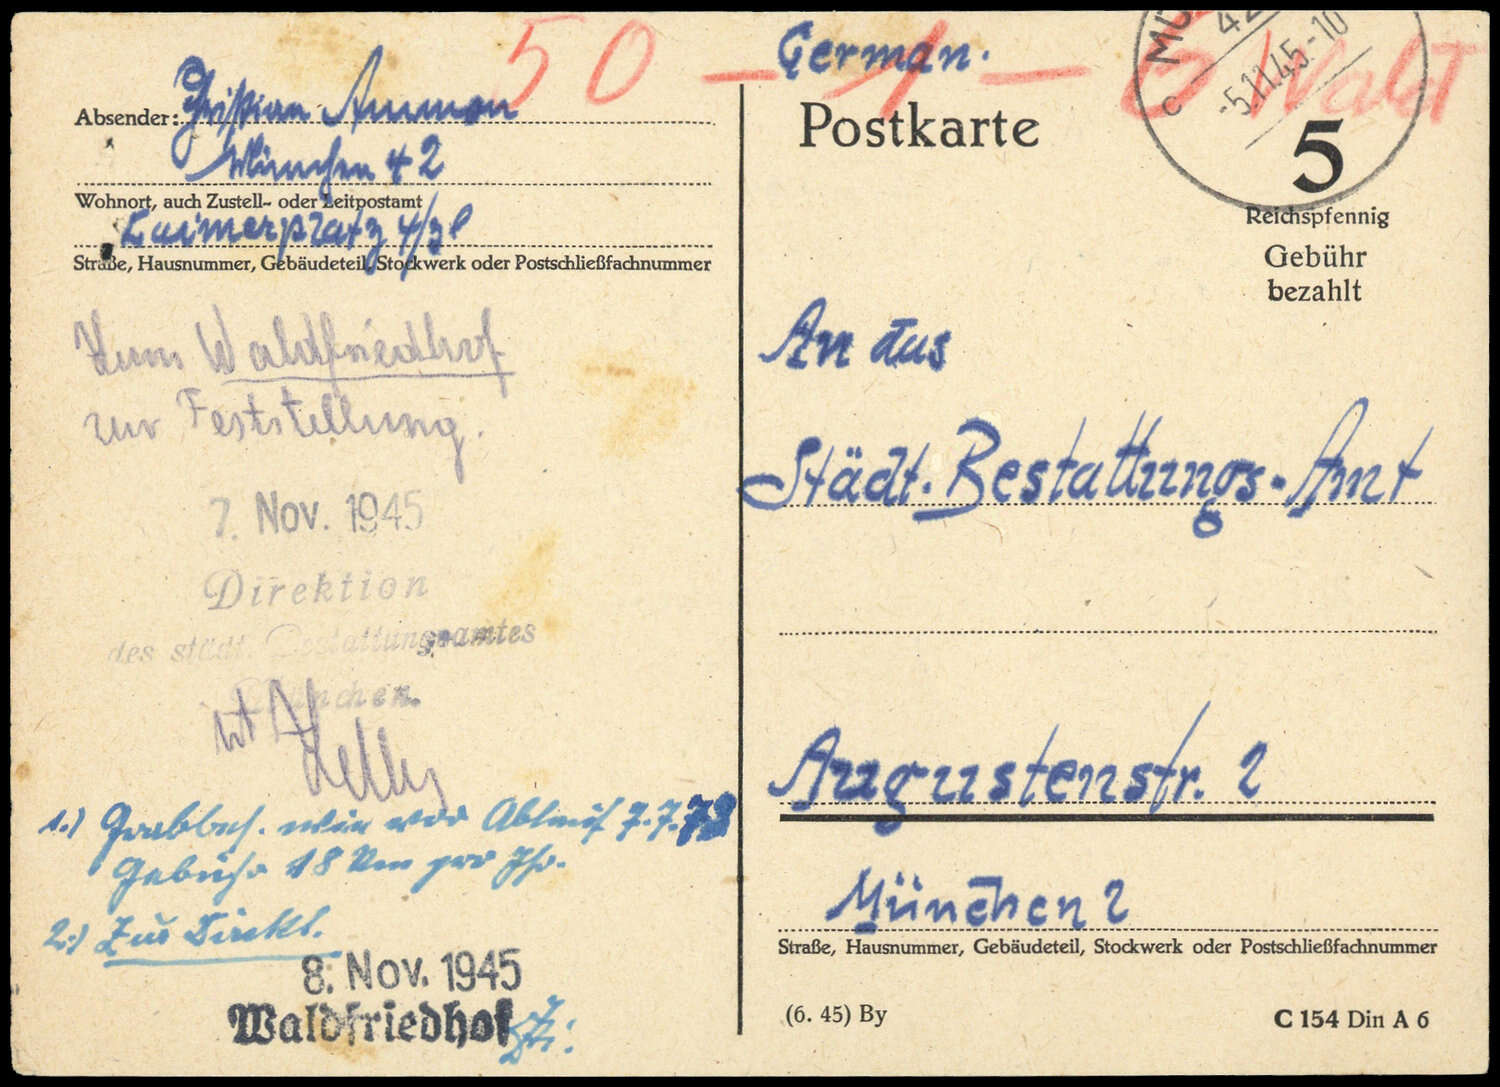 50 — 1 — Wald
German.
Postkarte
MÜ
42
c
-5.11.45.-10
5
Reichspfennig
Gebühr
bezahlt
Absender: Christian Ammon
München 42
Wohnort, auch Zustell- oder Leitpostamt
Laimerplatz 4/3l
Straße, Hausnummer, Gebäudeteil, Stockwerk oder Postschließfachnummer
Zum Waldfriedhof
zur Feststellung.
7. Nov. 1945
Direktion
des städt. Bestattungsamtes
München.
1.) Grabbes. Ablauf 7.7.
Gebühr 18 Rm pro Jhr.
2.) Zur Direkt.
8. Nov. 1945
Waldfriedhof
An das
Städt. Bestattungs-Amt
Augustenstr. 2
München 2
Straße, Hausnummer, Gebäudeteil, Stockwerk oder Postschließfachnummer
(6. 45) By
C 154 Din A 6